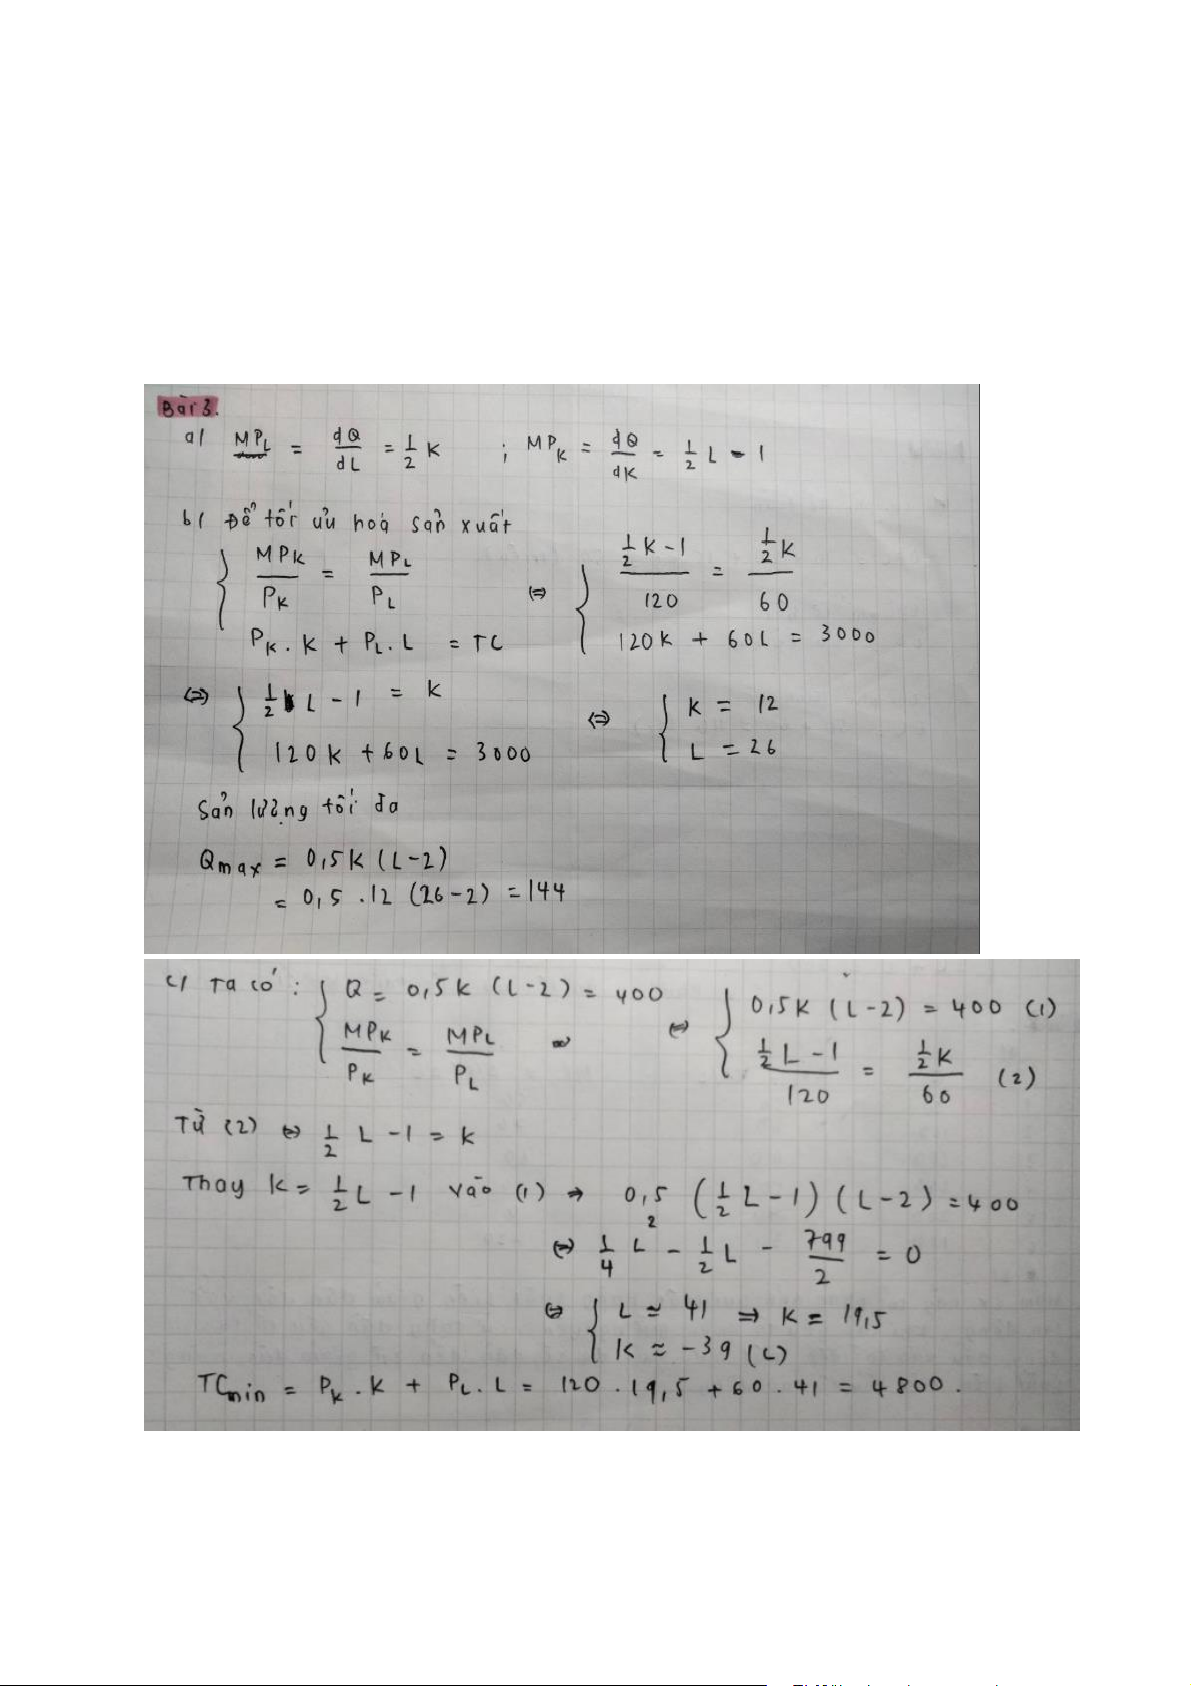 Bài 3.
a/ MP_L = dQ/dL = 1/2 K ; MP_K = dQ/dK = 1/2 L - 1
b/ Để tối ưu hoá sản xuất
{ MP_K/P_K = MP_L/P_L ⇔ { (1/2 K - 1)/120 = (1/2 K)/60
P_K . K + P_L . L = TC 120K + 60L = 3000
⇔ { 1/2 L - 1 = K ⇔ { K = 12
120K + 60L = 3000 L = 26
Sản lượng tối đa
Qmax = 0,5K (L-2)
= 0,5 . 12 (26-2) = 144
c/ Ta có : { Q = 0,5K (L-2) = 400 ⇔ { 0,5K (L-2) = 400 (1)
MP_K/P_K = MP_L/P_L (1/2 L - 1)/120 = (1/2 K)/60 (2)
Từ (2) ⇔ 1/2 L - 1 = K
Thay K = 1/2 L - 1 vào (1) ⇒ 0,5 (1/2 L - 1) (L-2) = 400
⇔ 1/4 L² - 1/2 L - 799/2 = 0
⇔ { L ≈ 41 ⇒ K = 19,5
K ≈ -39 (L)
TCmin = P_K . K + P_L . L = 120 . 19,5 + 60 . 41 = 4800.